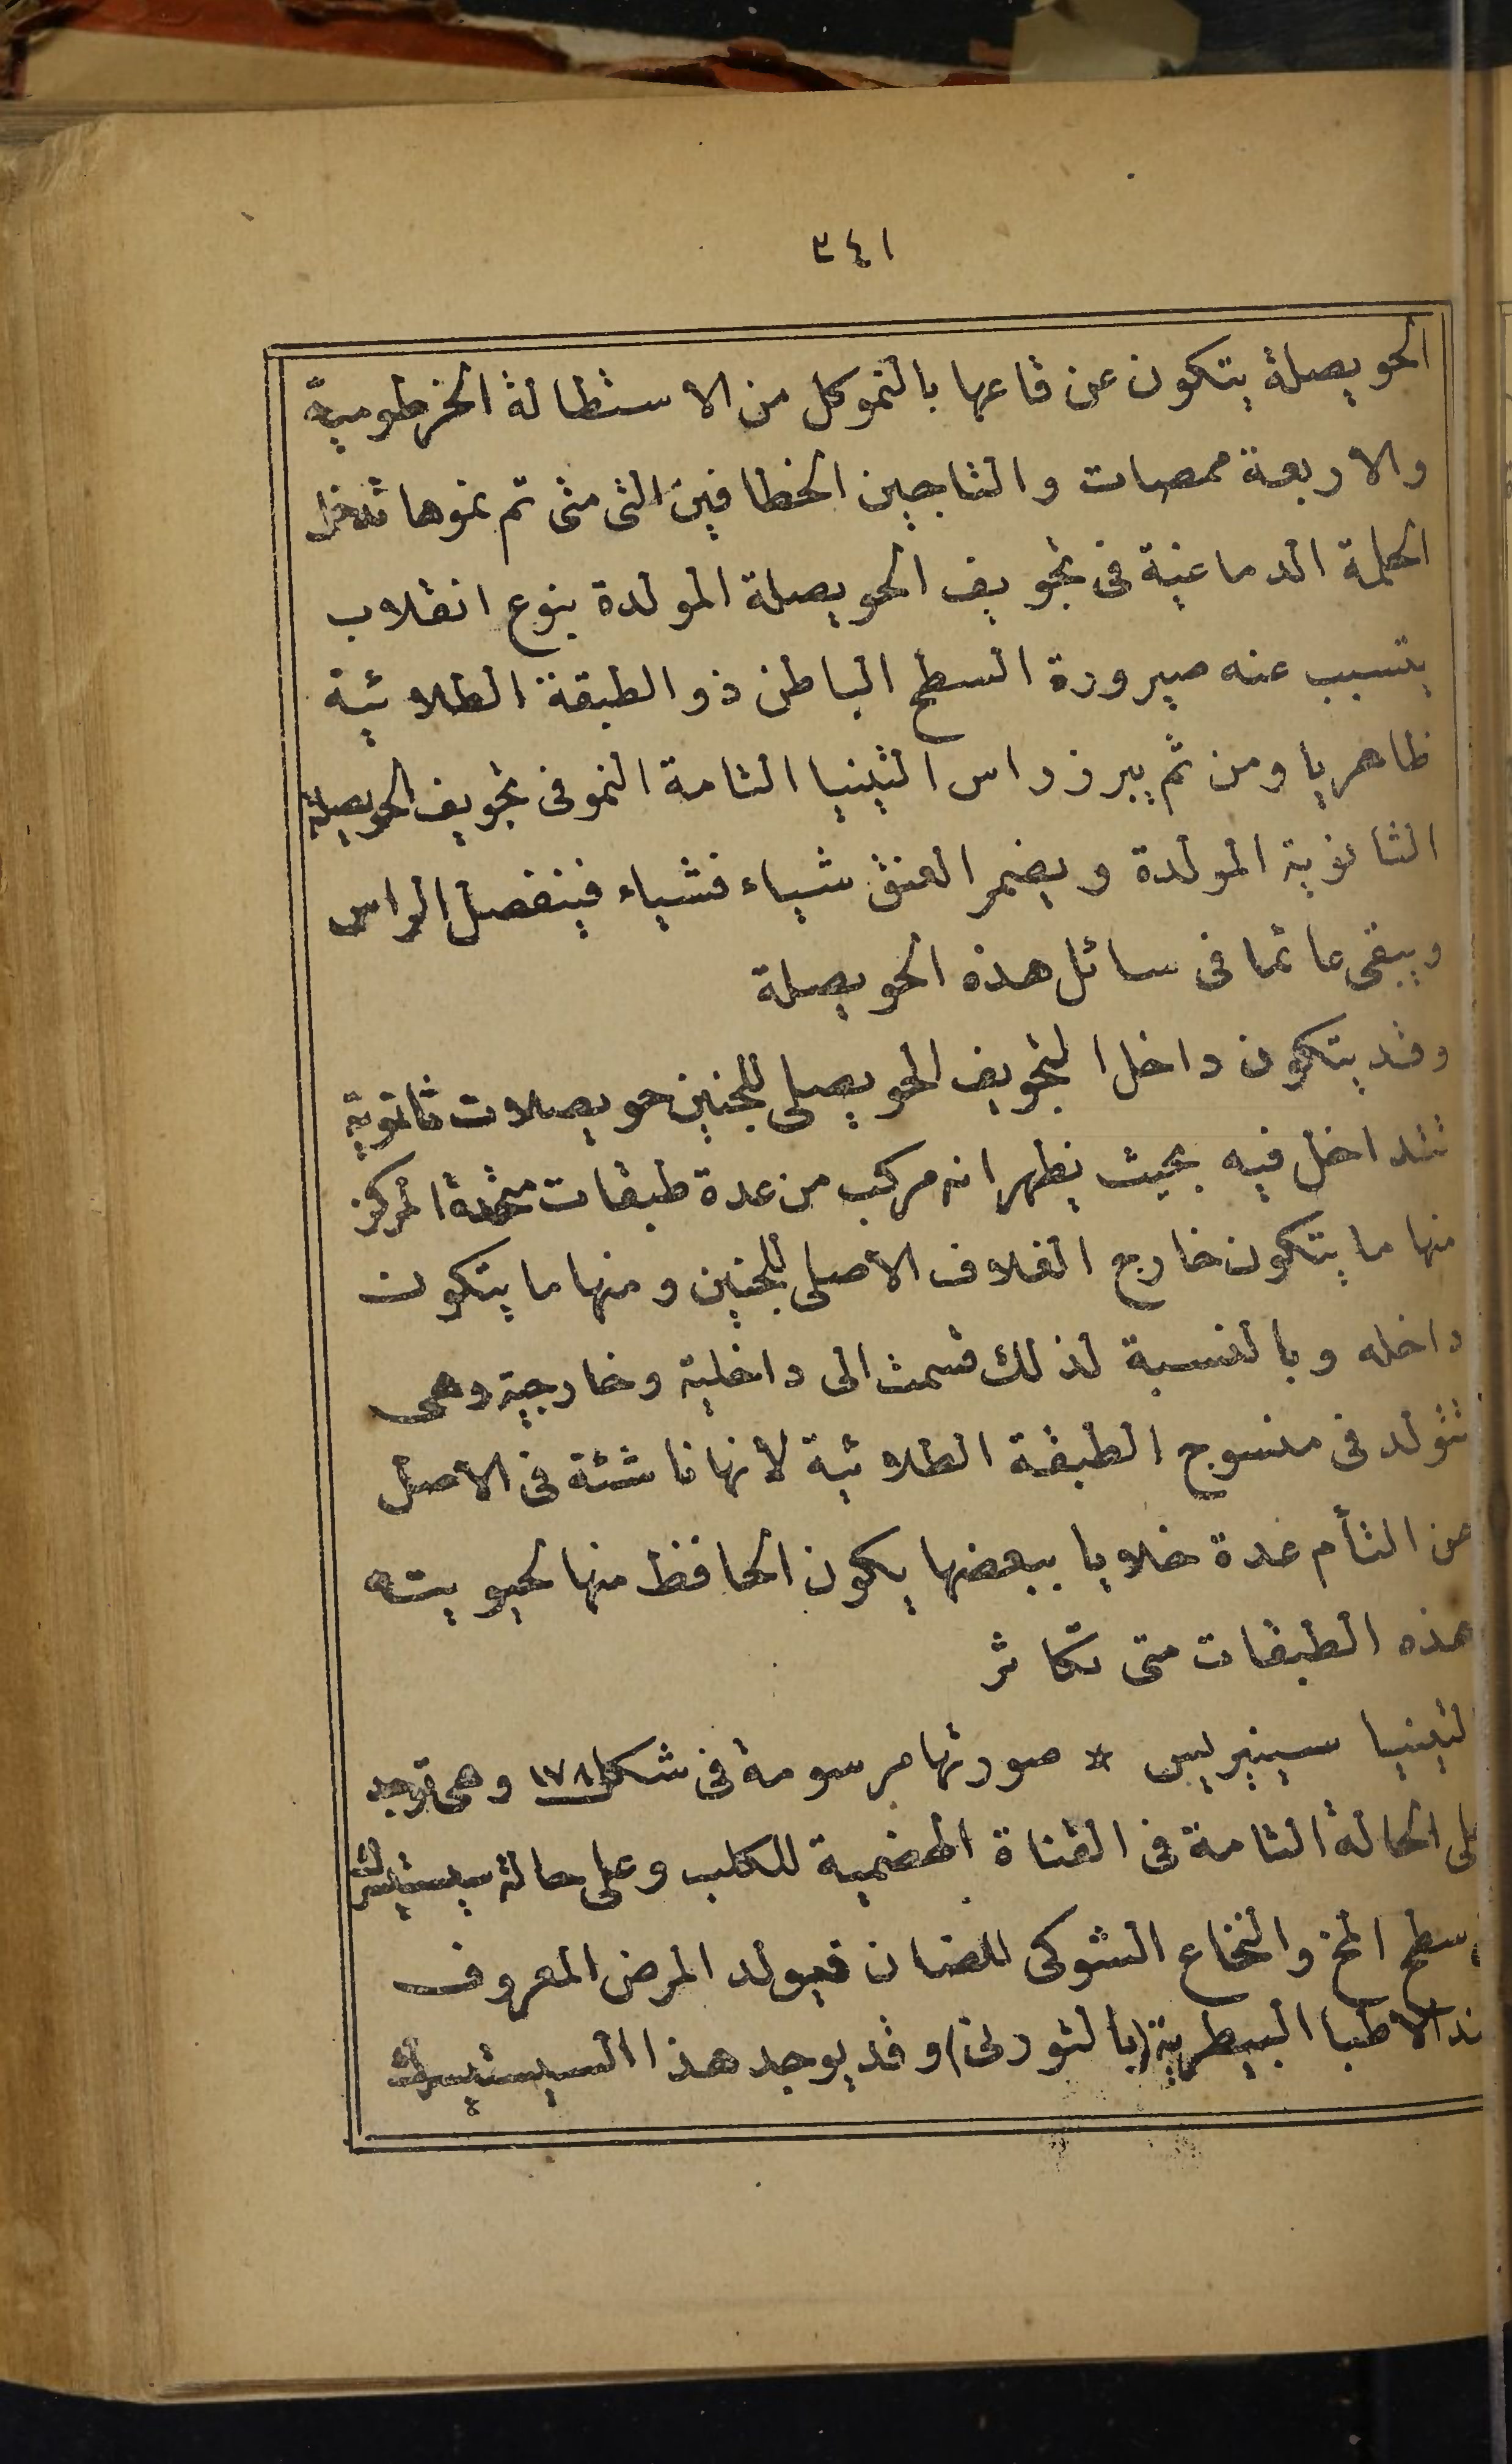 ٣٤١
الحويصلة يتكون عن قاعها بالنمو كل من الاستطالة الخرطومية
والاربعة ممصات والتاجين الخطافين التى متى تم نموها تدخل
الحلمة الدماغية فى تجويف الحويصلة المولدة بنوع انقلاب
يتسبب عنه صيرورة السطح الباطن ذو الطبقة الطلائية
ظاهريا ومن ثم يبرز راس التينيا التامة النمو فى تجويف الحويصلة
الثانوية المولدة ويضمر العنق شياء فشياء فينفصل الراس
ويبقى عائما فى سائل هذه الحويصلة
وقد يتكون داخل التجويف الحويصلى للجنين حويصلات ثانوية
تتداخل فيه بحيث يظهر انه مركب من عدة طبقات متحدة المركز
منها ما يتكون خارج الغلاف الاصلى للجنين ومنها ما يتكون
داخله وبالنسبة لذلك قسمت الى داخلية وخارجية وهى
تتولد فى منسوج الطبقة الطلائية لانها ناشئة فى الاصل
عن التأم عدة خلايا ببعضها يكون الحافظ منها لحيويته
هذه الطبقات متى تكاثر
التينيا سينيريس * صورتها مرسومة فى شكل ١٧٨ وهى توجد
على الحالة التامة فى القناة الهضمية للكلب وعلى حالة سيستيسرك
سطح المخ والنخاع الشوكى للضان فيولد المرض المعروف
عند الاطبا البيطرية (بالتورنى) وقد يوجد هذا السيستيسرك